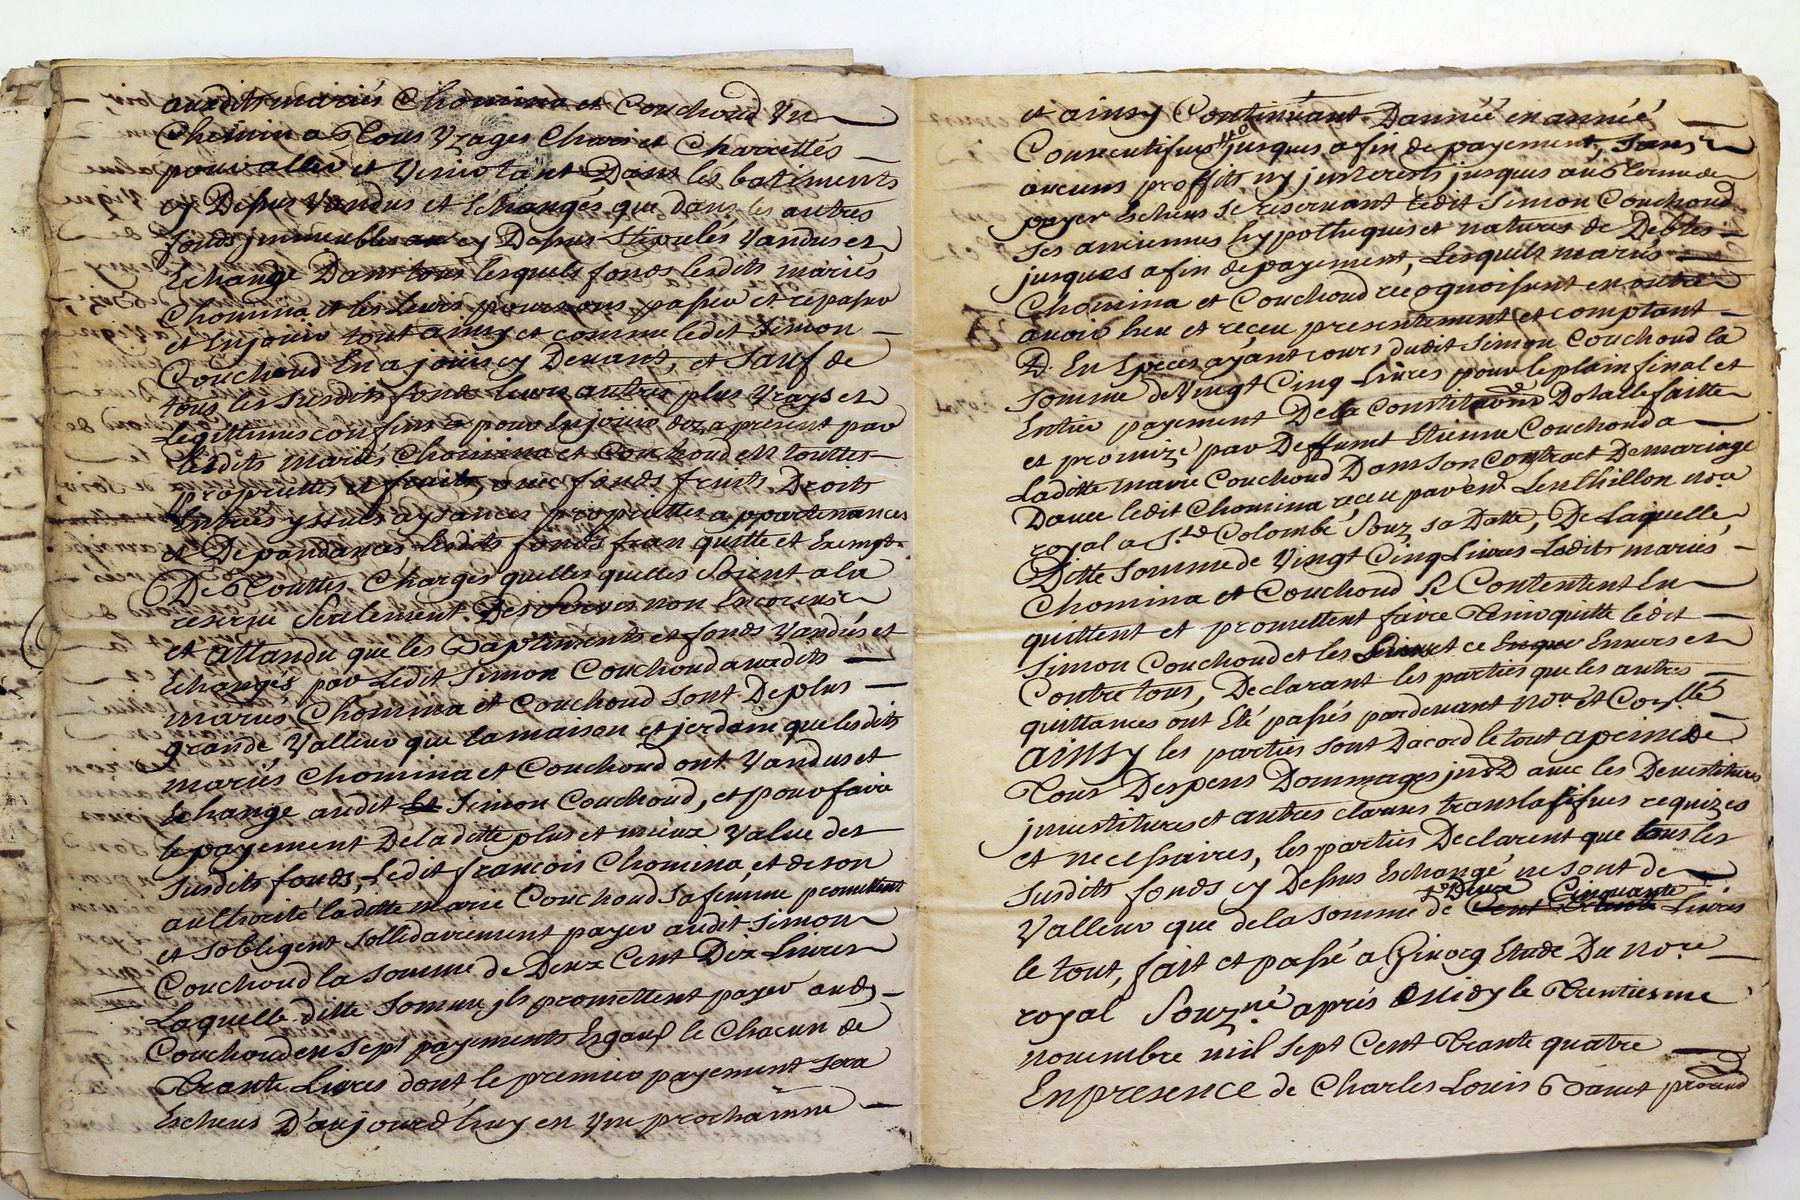 auxdits mariés Chomina et Couchoud Un
Chemin a Tous Uzages Chars et Charrettes
pour aller et Venir tant Dans les batiments
cy Dessus Vandus et Echangés que dans les autres
fonds jmmeubles cy Dessus Stipulés Vandus et
Echangé Dans tous lesquels fonds lesdits mariés
Chomina et les Leurs pourront passer et repasser
et Enjouir tout ainsy et comme ledit Simon
Couchoud En a jouis cy Devant, et Sauf de
tous les Susdits fonds leurs autres plus Vrays et
Legittimes confins pour Enjouir dez a present par
lesdits mariés Chomina et Couchoud en touttes
proprietés et fruits, avec fonds fruits Droits
Entrées yssues aysances proprietés appartenances
et Dépandances lesdits fonds fran quitte et Exempt
De Touttes Charges quelles quelles Soient a la
reserve Seulement Des Servis non Encourus
et attandu que les Baptiments et fonds Vandus et
Echangés par Ledit Simon Couchoud auxdits
mariés Chomina et Couchoud Sont De plus
grande Valleur que la maison et jerdein que lesdits
mariés Chomina et Couchoud ont Vandus et
Echange audit Simon Couchoud, et pour faire
le payement De la ditte plus et mieux Value des
Susdits fonds, Ledit françois Chomina, et de son
authorité laditte marie Couchoud Sa femme promettent
et sobligent Sollidairement payer audit Simon
Couchoud la Somme de Deux Cent Dix Livres
Laquelle ditte Somme jls promettent payer aud.
Couchoud en Sept payements Esgaux le Chacun de
Trante Livres dont le premier payement Sera
Escheus D'aujourd'huy en Un prochaine
et ainsy Continuant D'année en année
Consecutifves jusques a fin de payement, Sans
aucuns proffits ny jnterests jusques au Terme de
payer Escheus Se reservant ledit Simon Couchoud
Ses anciennes hypotheques et natures de Debtes
jusques a fin de payement, Lesquels mariés
Chomina et Couchoud recoquoisent en outre
avoir heu et receu presentement et comptant
En Especes ayant cours dudit Simon Couchoud la
Somme de Vingt Cinq Livres pour le plain final et
Entier payement De la Constitution Dotalle faitte
et promize par Deffunct Etienne Couchoud a
Laditte marie Couchoud Dans Son Contract De mariage
D'avec ledit Chomina, receu par Lenthillon nore
royal a Ste Colombe Souz sa Datte, De Laquelle
Ditte Somme de Vingt Cinq Livres Lesdits mariés
Chomina et Couchoud Se Contentent En
quittent et promettent faire Tenir quitte ledit
Simon Couchoud et les Siens et ce Envers et
Contre tous, Declarant les parties que les autres
quittances ont Eté passés pardevant nore et
Ainsy les parties Sont Dacord le tout a peine de
Tous Despens Dommages avec les Devestitures
jnvestitures et autres clauses translatifves requizes
et necessaires, les parties Declarent que tous les
Susdits fonds cy Dessus Eschangé ne Sont de
Valleur que de la Somme de Deux Cent Cinquante Livres
le tout, fait et passé a Givorg Etude Du nore
royal Souzné aprés Midy le Trentiesme
novembre mil Sept Cent Trante quatre
En presence de Charles Louis